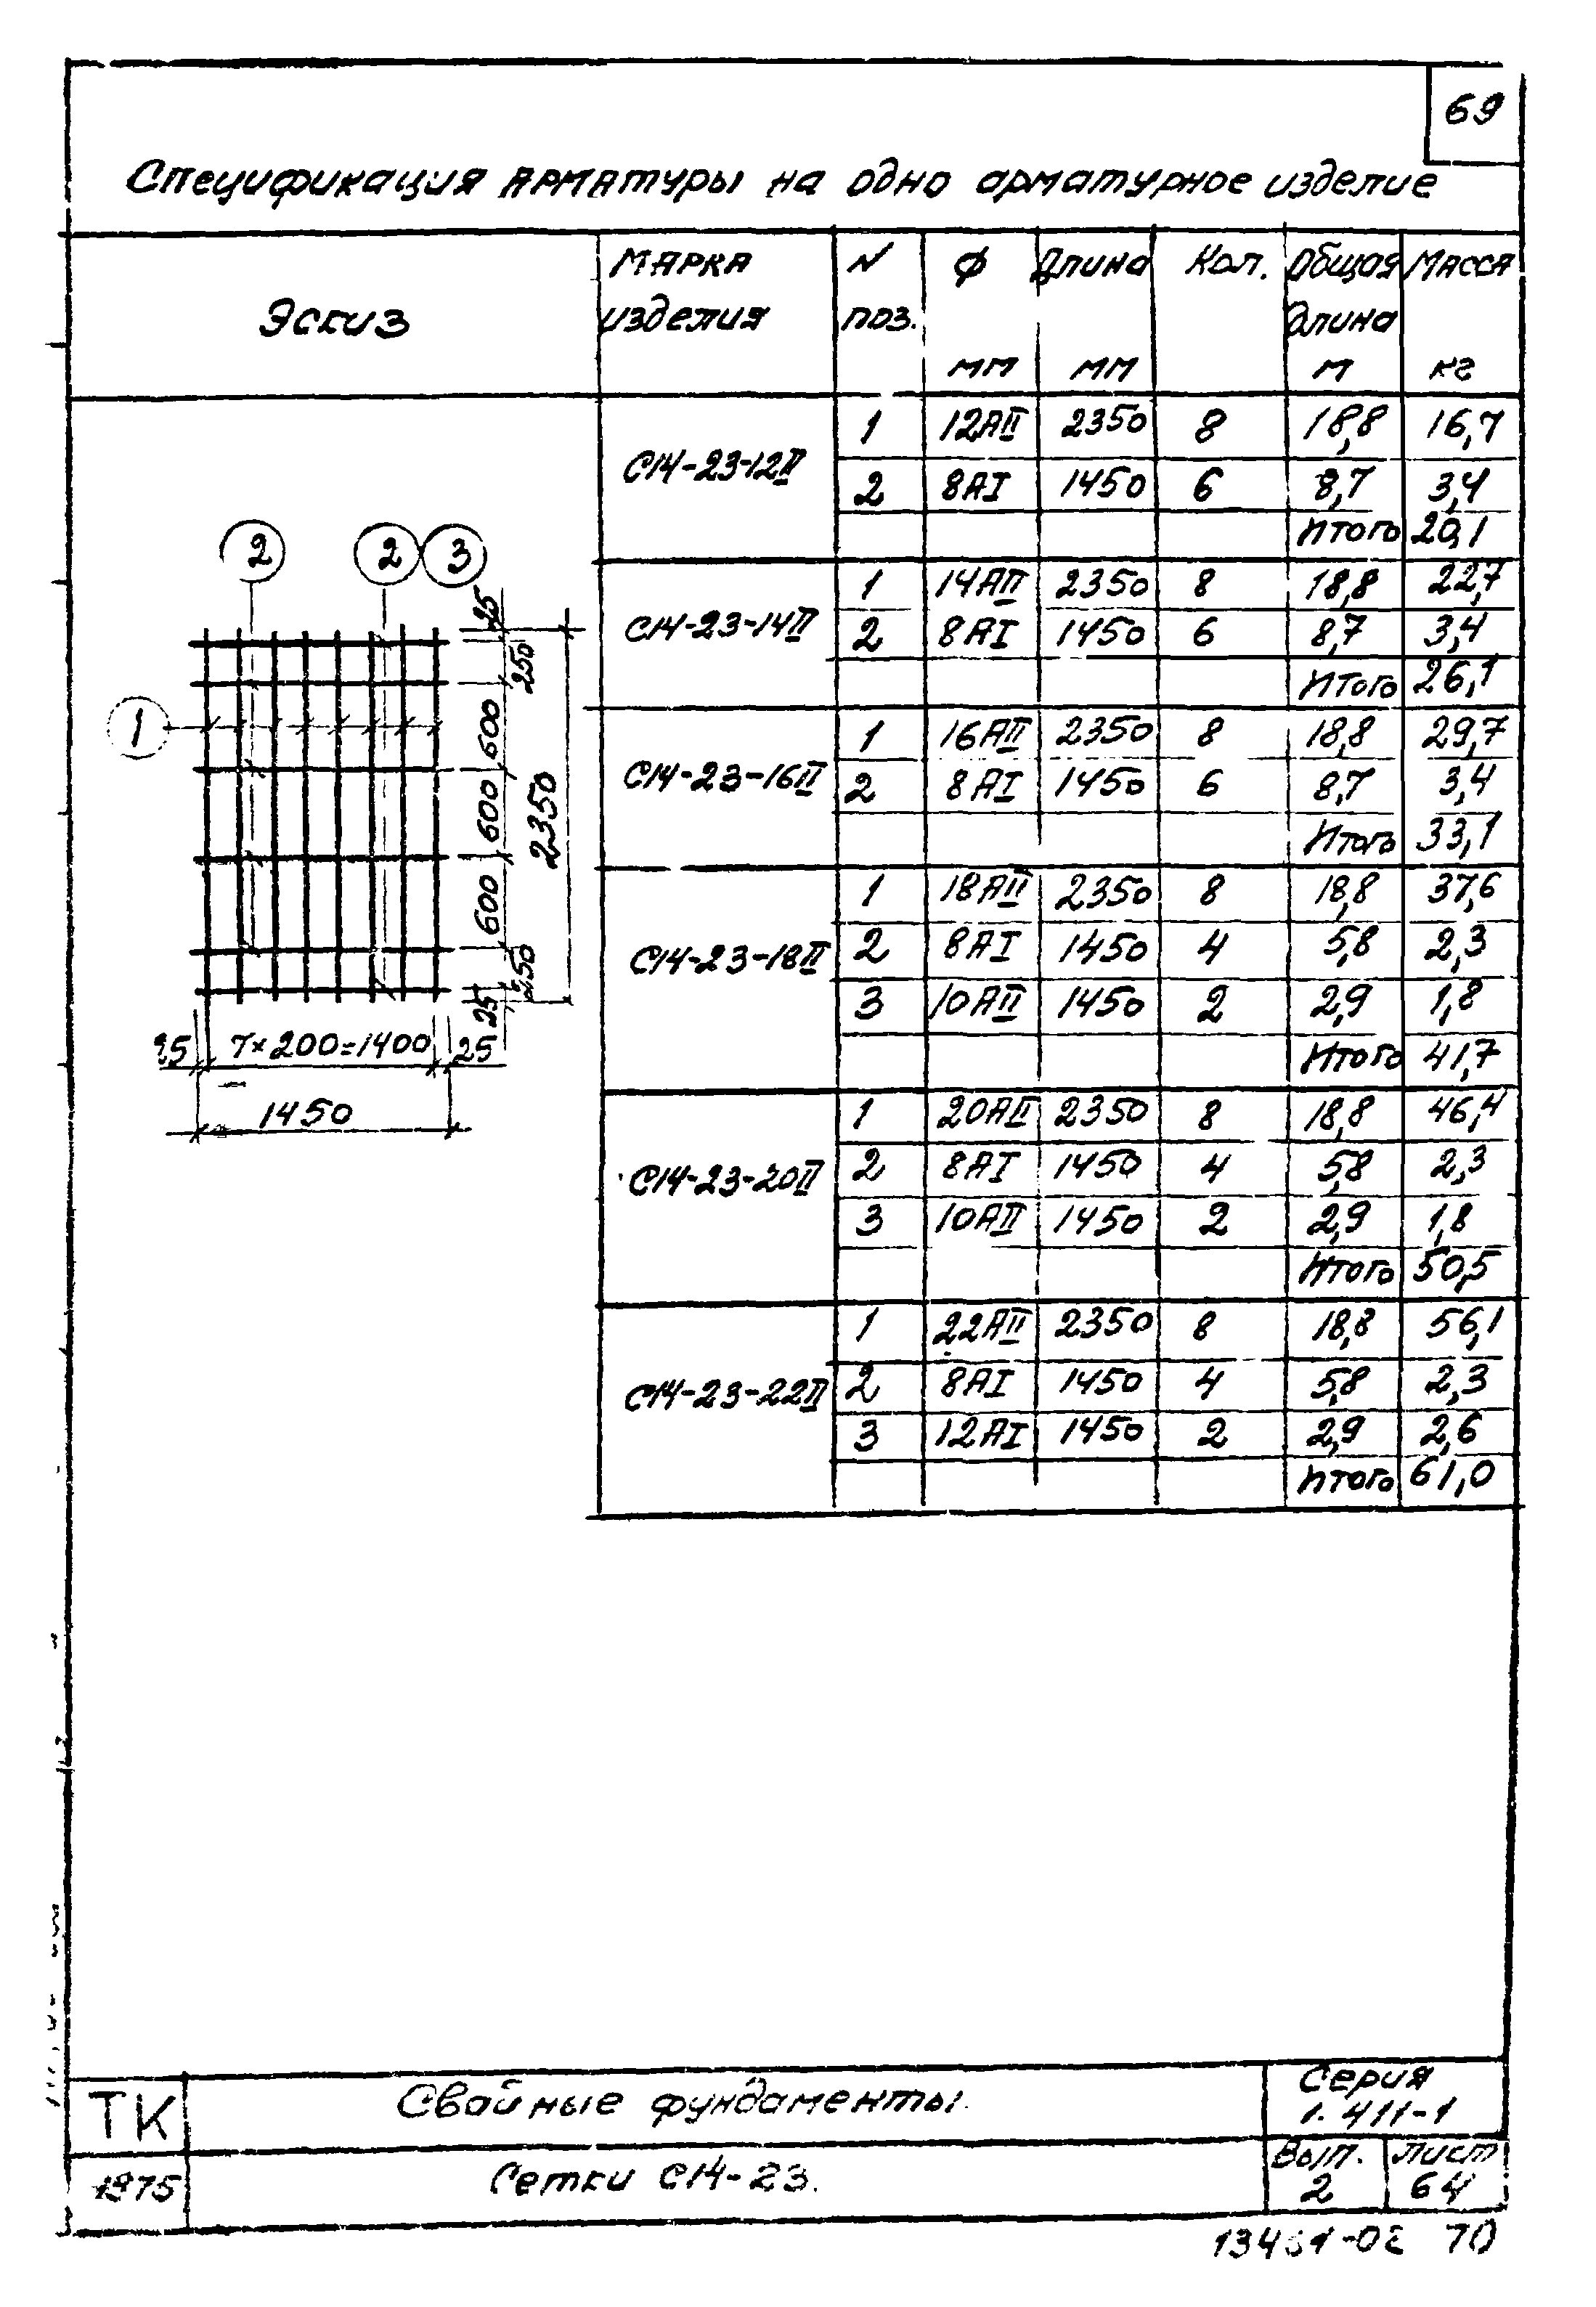 69
Спецификация арматуры на одно арматурное изделие
Эскиз
Марка изделия
N поз.
Ф мм
Длина мм
Кол.
Общая длина м
Масса кг
С14-23-12II
1 12АII 2350 8 18,8 16,7
2 8АI 1450 6 8,7 3,4
Итого 20,1
С14-23-14II
1 14АII 2350 8 18,8 22,7
2 8АI 1450 6 8,7 3,4
Итого 26,1
С14-23-16II
1 16АII 2350 8 18,8 29,7
2 8АI 1450 6 8,7 3,4
Итого 33,1
С14-23-18II
1 18АII 2350 8 18,8 37,6
2 8АI 1450 4 5,8 2,3
3 10АII 1450 2 2,9 1,8
Итого 41,7
С14-23-20II
1 20АII 2350 8 18,8 46,4
2 8АI 1450 4 5,8 2,3
3 10АII 1450 2 2,9 1,8
Итого 50,5
С14-23-22II
1 22АII 2350 8 18,8 56,1
2 8АI 1450 4 5,8 2,3
3 12АI 1450 2 2,9 2,6
Итого 61,0
2 2 3
1
25
250
600
600
600
250
25
2350
25 7×200=1400 25
1450
ТК
1975
Свайные фундаменты.
Сетки С14-23.
Серия
1.411-1
Вып.
2
Лист
64
70